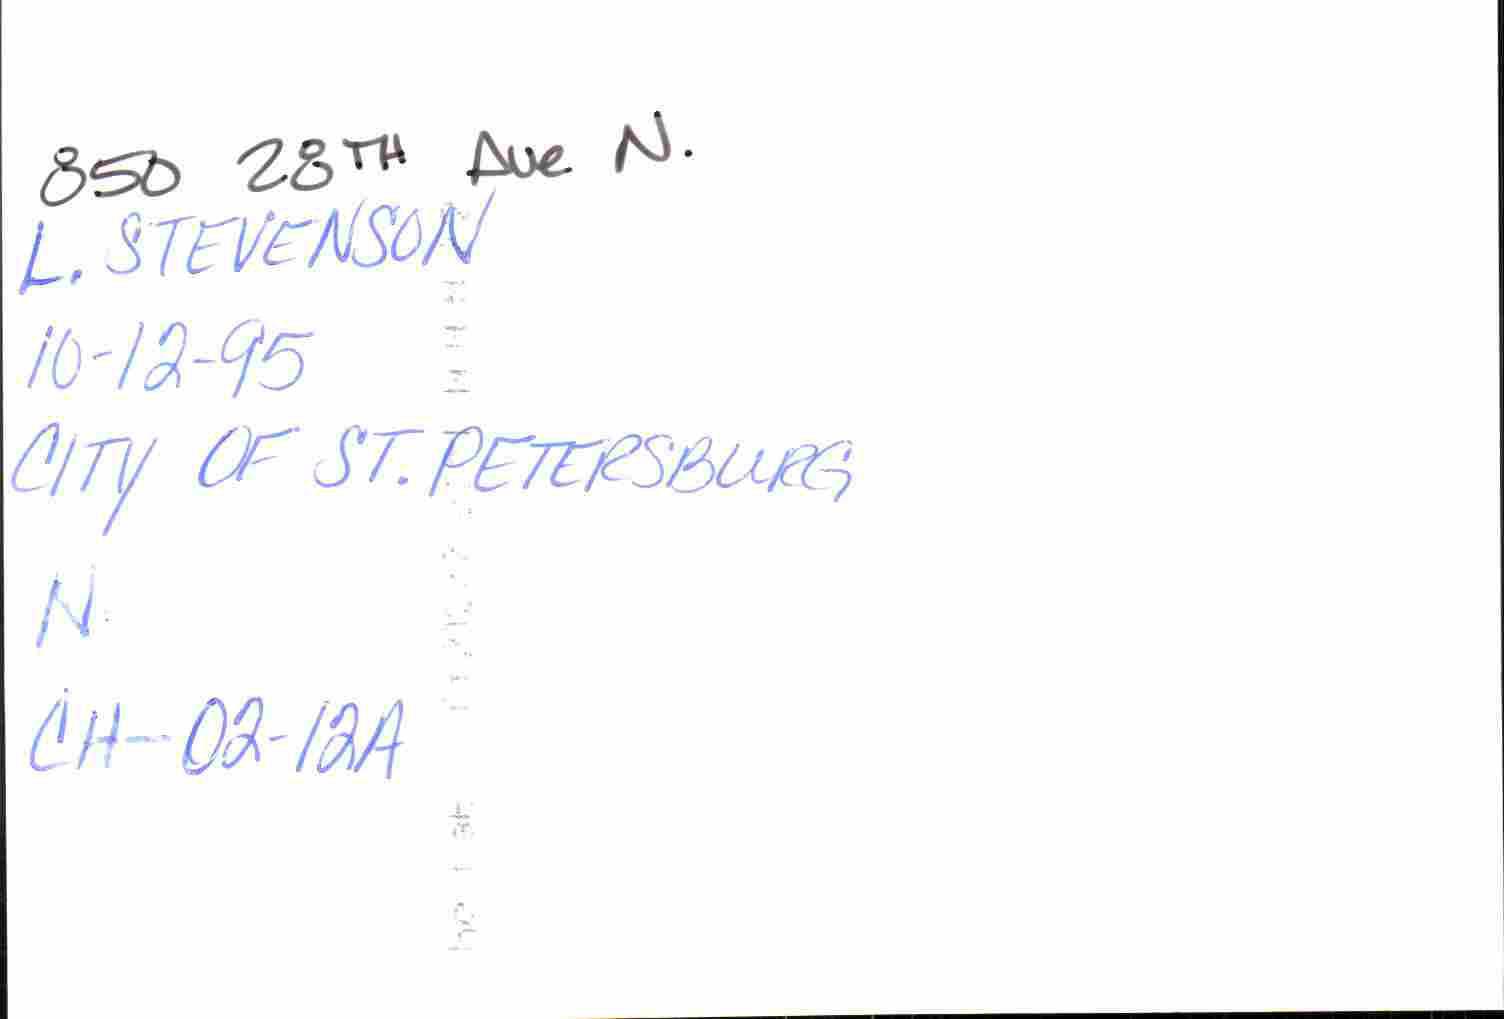 850 28TH Ave N.
L. STEVENSON
10-12-95
CITY OF ST. PETERSBURG
N.
CH-02-12A